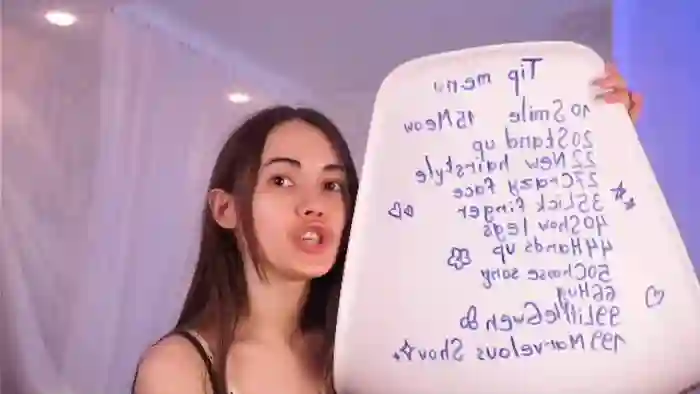 Tip menu
10Smile 15Meow
20Stand up
22New hairstyle
27Crazy face
35Lick finger
40Show legs
44Hands up
50Choose song
66Hug
99Little
199Marvelous Show